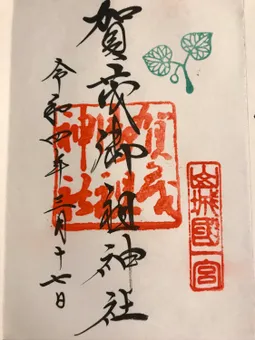 山城國一宮
賀茂御祖神社
賀茂御祖神社
令和四年三月十七日